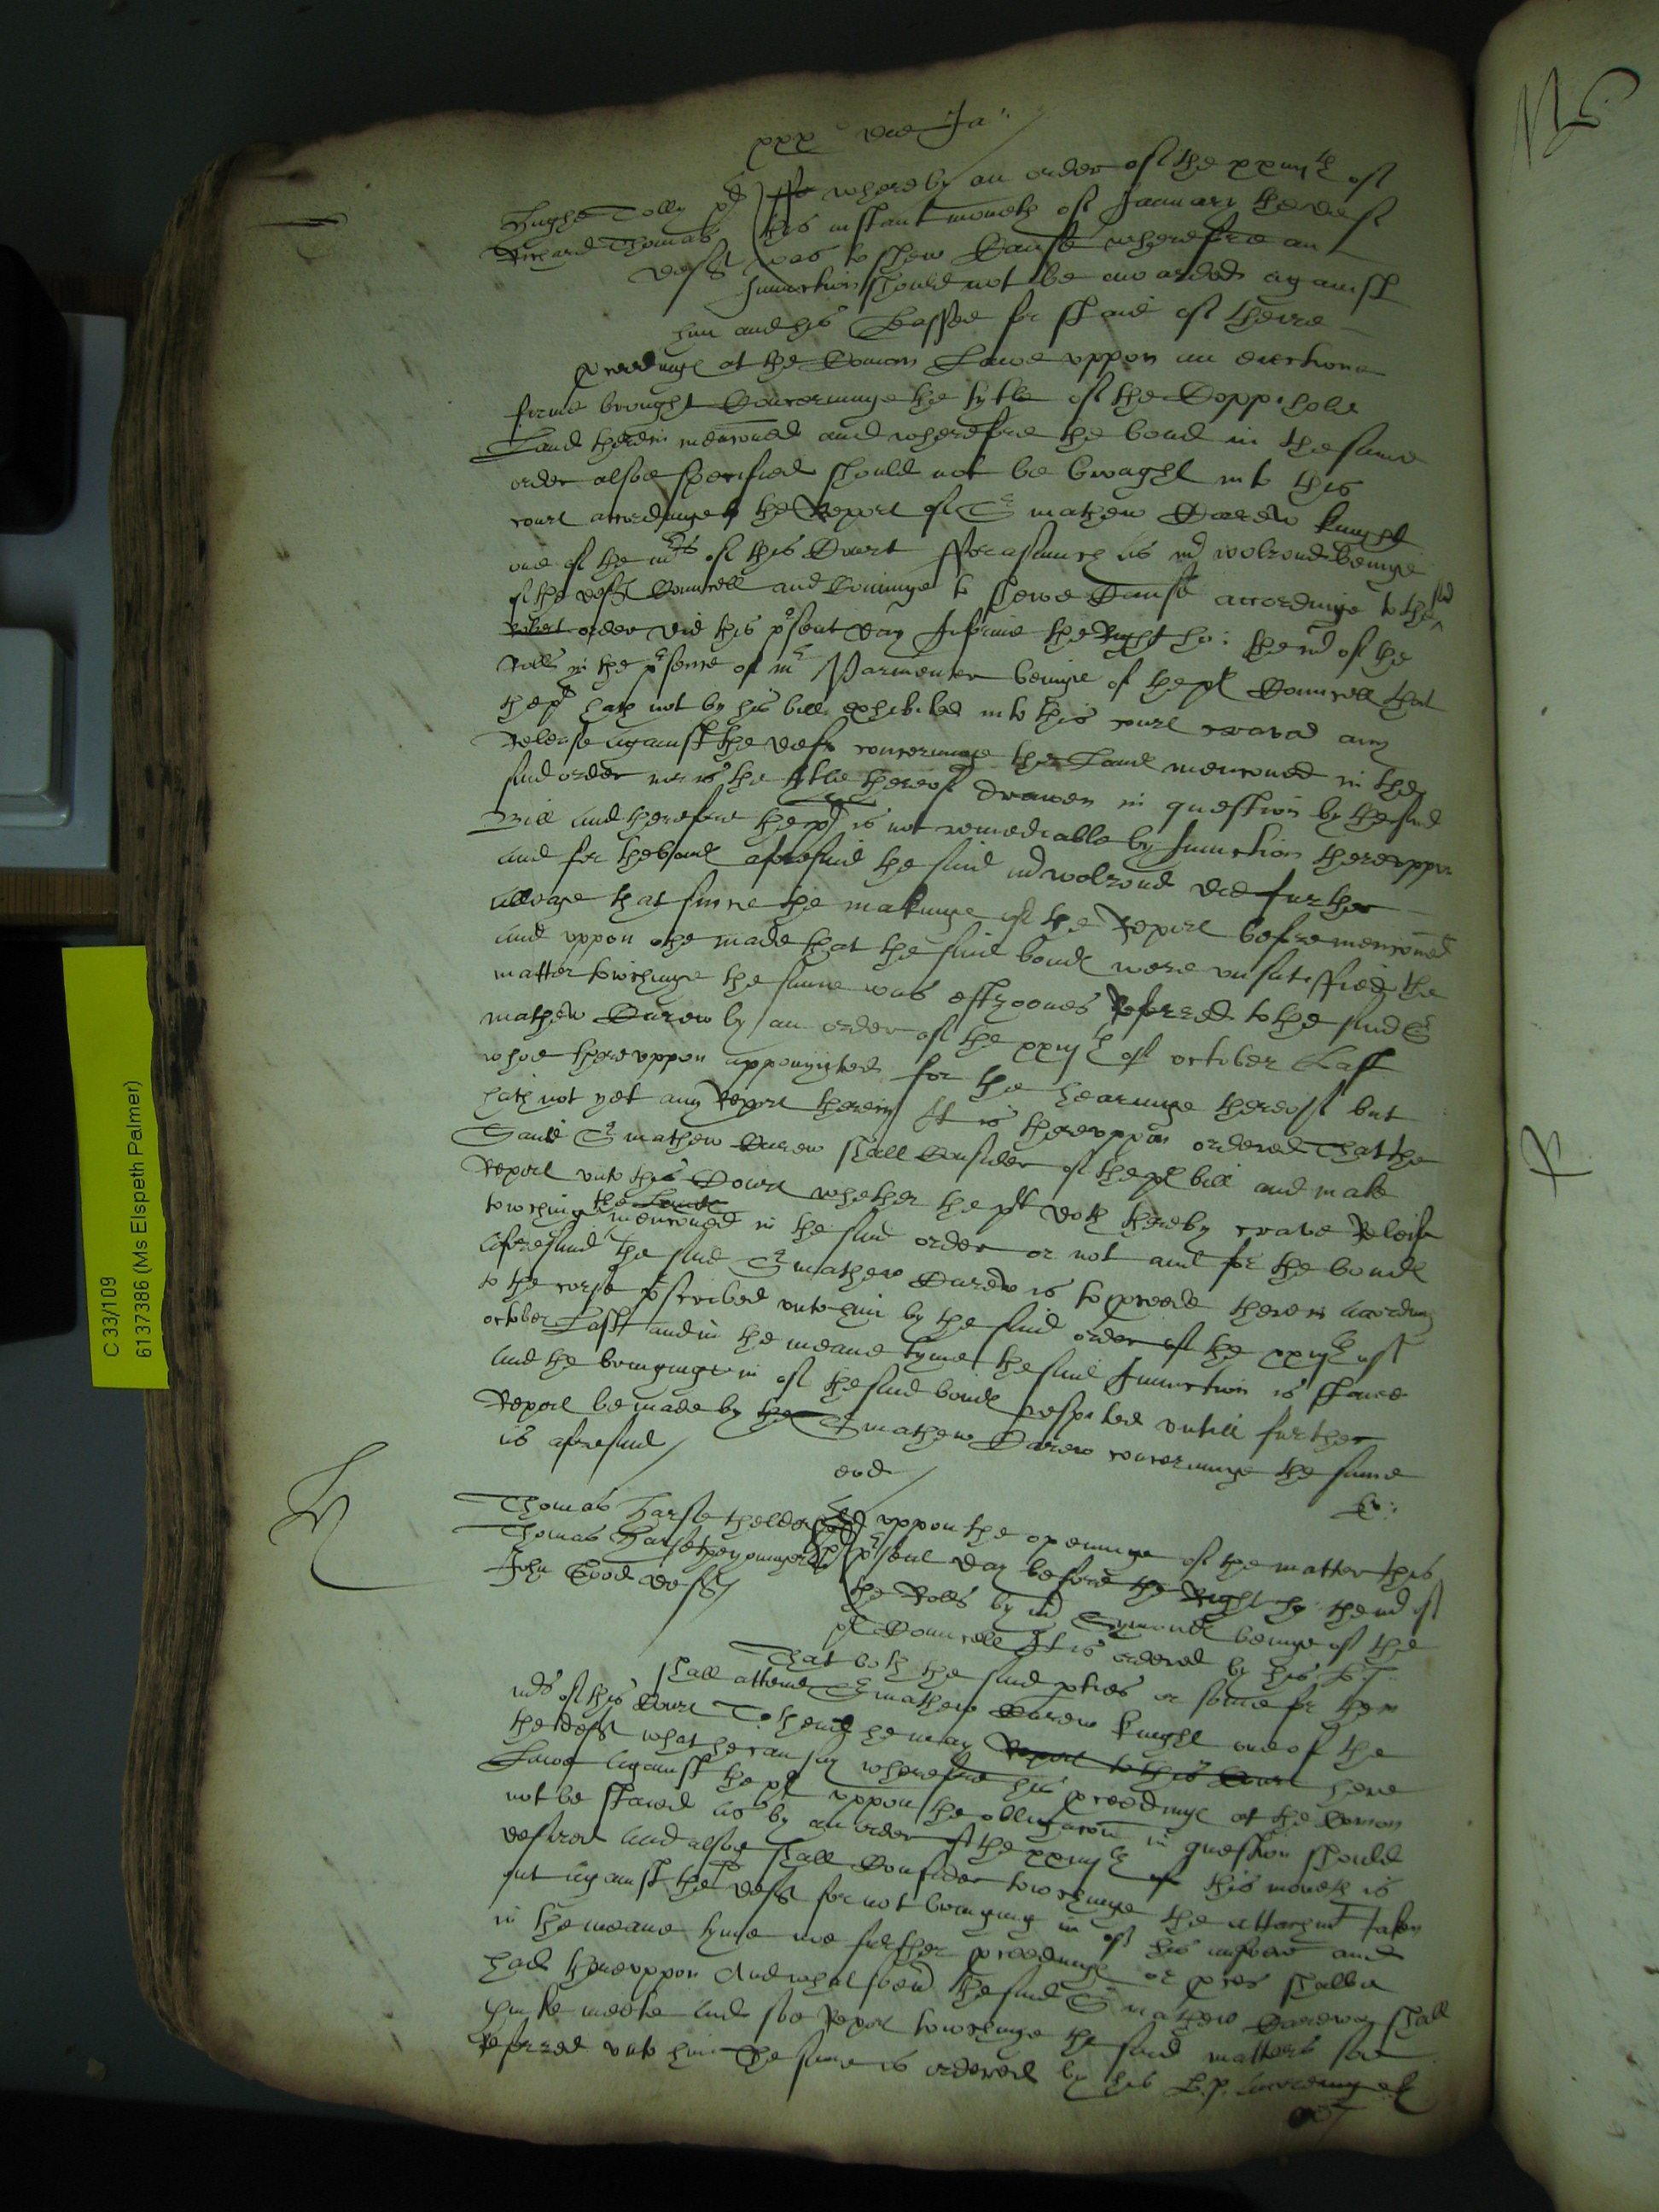 xxx die Ja
Hughe Tolly pl whereby an order of the xxiiijth of
Richard Thomas this instant moneth of January the def
deft was to shew Cause wherefore an
Iniunction should not be awarded against
him and his Lessee for staie of theire
proceadinge at the Comon Lawe vppon an eiectione
firme brought Concerninge the tytle of the Coppihold
Land therein menconed and wherefore the bond in the same
order alsoe specified should not be brought into this
court accordinge to the Report of Sr mathew Carew knight
one of the mrs of this Court fforasmuch as mr wolrond beinge
of the deft Councell and Cominge to shewe Cause accordinge to the said
order did this present day Informe the Right ho: the mr of the
Rolls in the psence of mr Parmenter beinge of the pl Councell that
the pl hath not by his bill exhibited into this court craved any
Releise against the deft concerninge the Land menconed in the
said order nor is the tytle thereof drawen in question by the said
Bill and therefore the pl is not remediable by Iniunction therevppon
and for the bond aforesaid the said mr wolrond did further
alleage that since the makinge of the Report before menconed
and vppon othe made that the said bond were vnsatisfied the
matter towchinge the same was eftzoones Referred to the said Sr
mathew Carew by an order of the xxiijth of october Last
whoe therevppon appoynted for the hearinge thereof but
hath not yet any Report therein It is therevppon ordered That the
Said Sr mathew Carew shall Consider of the pl bill and make
Report vnto this Court whether the pl doth thereby crave Releife
towching the Land menconed in the said order or not and for the bond
aforesaid the said Sr mathew Carew is to proceede therein accordinge
to the corse pscribed vnto him by the said order of the xxiijth of
october Last and in the meane tyme the said Iniunction is staied
and the bringinge in of the said bond respited vntill further
Report be made by the Sr mathew Carew concerninge the same
as aforesaid
eod
Thomas thelder vppon the openinge of the matter this
Thomas the younger pl present day before the Right ho: the mr of
John Good deft the Rolls by mr Symond beinge of the
pl Councell It is ordered by his Lp
That both the said pties or some for them
shall attend Sr mathew Carew knight one of the
mrs of this Court To thend he may Report to this Court heare
the deft what he can say wherefore his proceedinge at the Comon
Lawe against the pl vppon the obligacon in question should
not be staied as by an order of the xxiijth of this moneth is
desired And alsoe shall Consider towchinge the attachmt taken
out against the deft for not bringing in of his answer and
in the meane tyme noe further proceadinge or pces shalbe
had therevppon And whatsoever the said Sr mathew Carewe shall
thinke meete and soe Report towchinge the said matters soe
Referred vnto him The same is ordered by his Lp. accordingly
C 33/109
6137386 (Ms Elspeth Palmer)